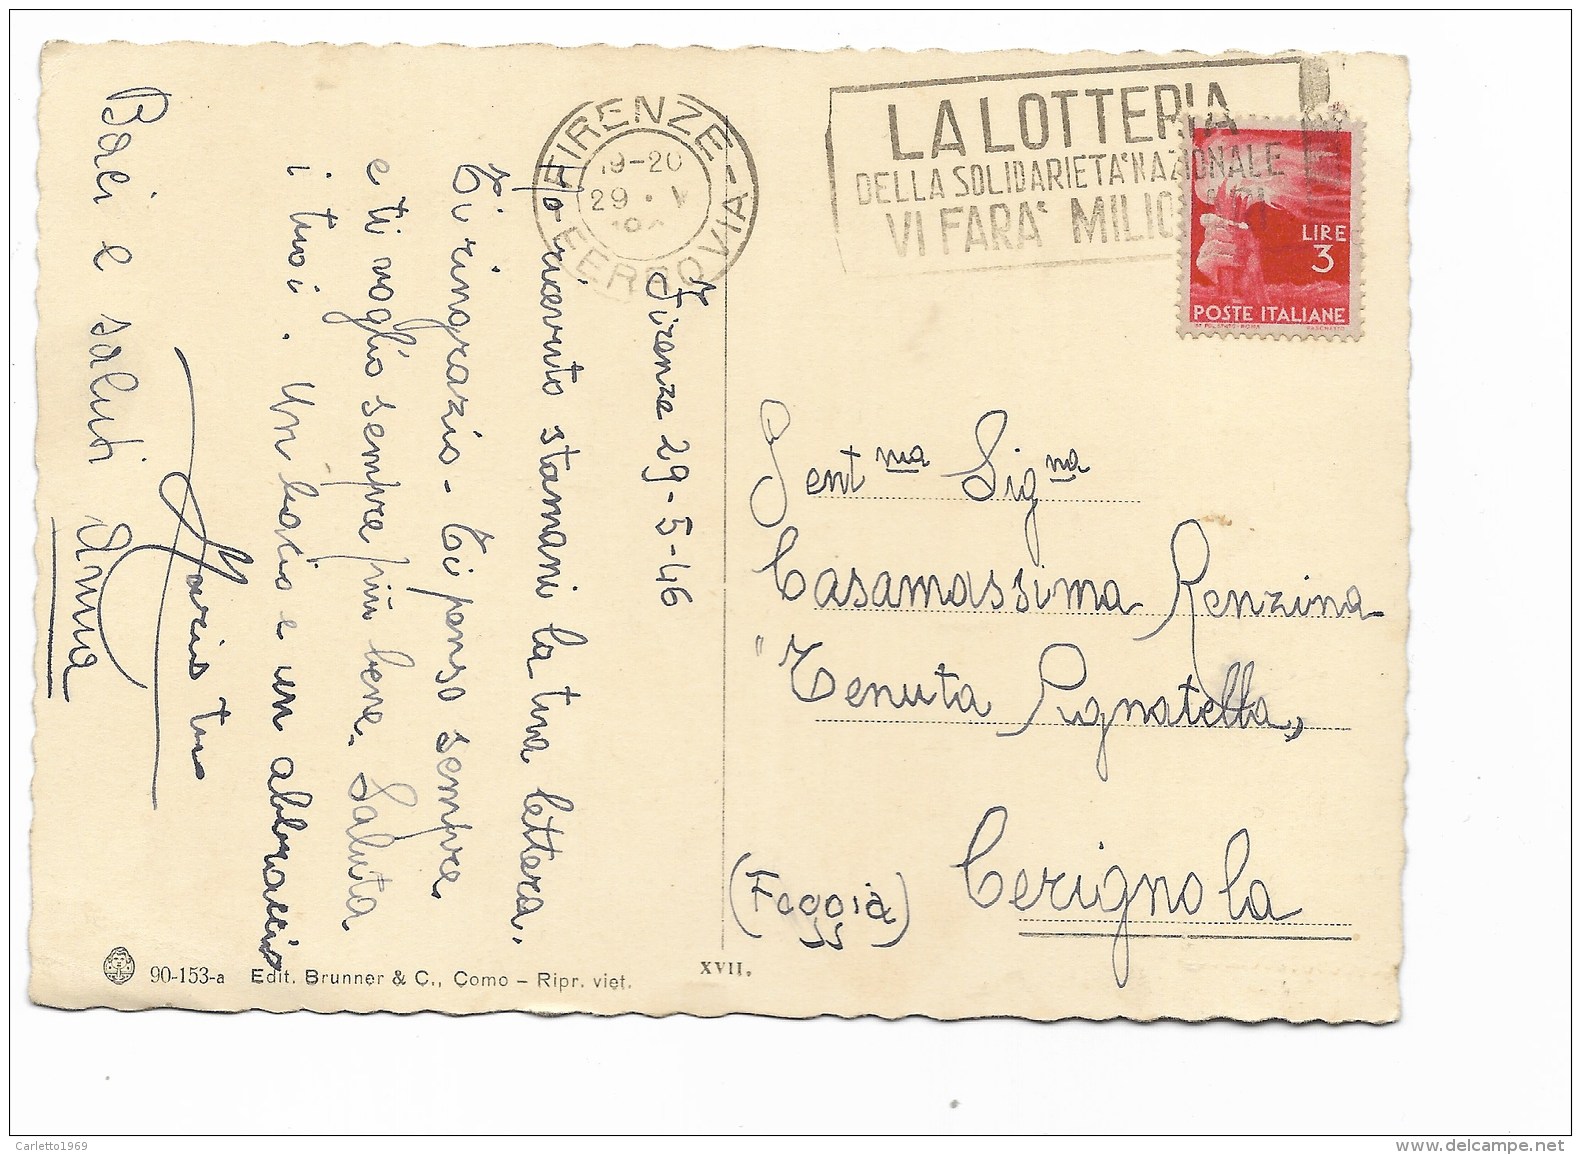 FIRENZE-FERROVIA
19-20
29 . V
LA LOTTERIA
DELLA SOLIDARIETA' NAZIONALE
VI FARA' MILIONARI
LIRE
3
POSTE ITALIANE
Firenze 29-5-46
Ho ricevuto stamani la tua lettera.
Ti ringrazio - Ti penso sempre
e ti voglio sempre più bene. Saluta
i tuoi. Un bacio e un abbraccio
Mario tuo
Baci e saluti
Anna
Gent ma Sig na
Casamassima Renzina
"Tenuta Pignatella"
Cerignola
(Foggia)
90-153-a Edit. Brunner & C., Como - Ripr. viet.
XVII.
Carletto1969
www.delcampe.net